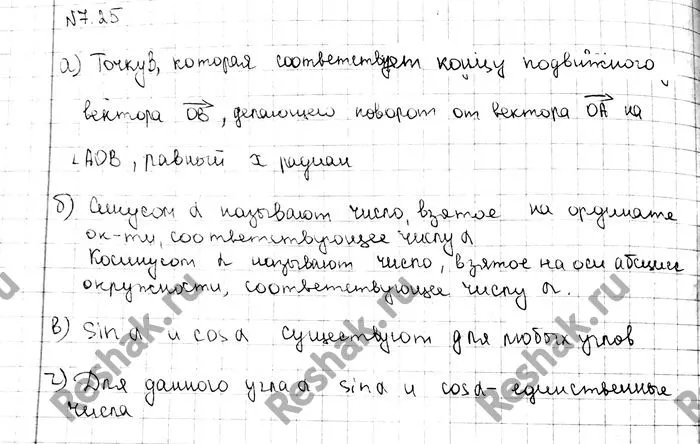 N7.25
а) Точку B, которая соответствует концу подвижного
вектора OB, делающего поворот от вектора OA на
∠AOB, равный x радиан
б) Синусом α называют число, взятое на ординате
ок-ти, соответствующее числу α
Косинусом α называют число, взятое на оси абсцисс
окружности, соответствующее числу α.
в) sin α и cos α существуют для любых углов
г) Для данного угла α sin α и cos α - единственные
числа
Reshak.ru
Reshak.ru
Reshak.ru